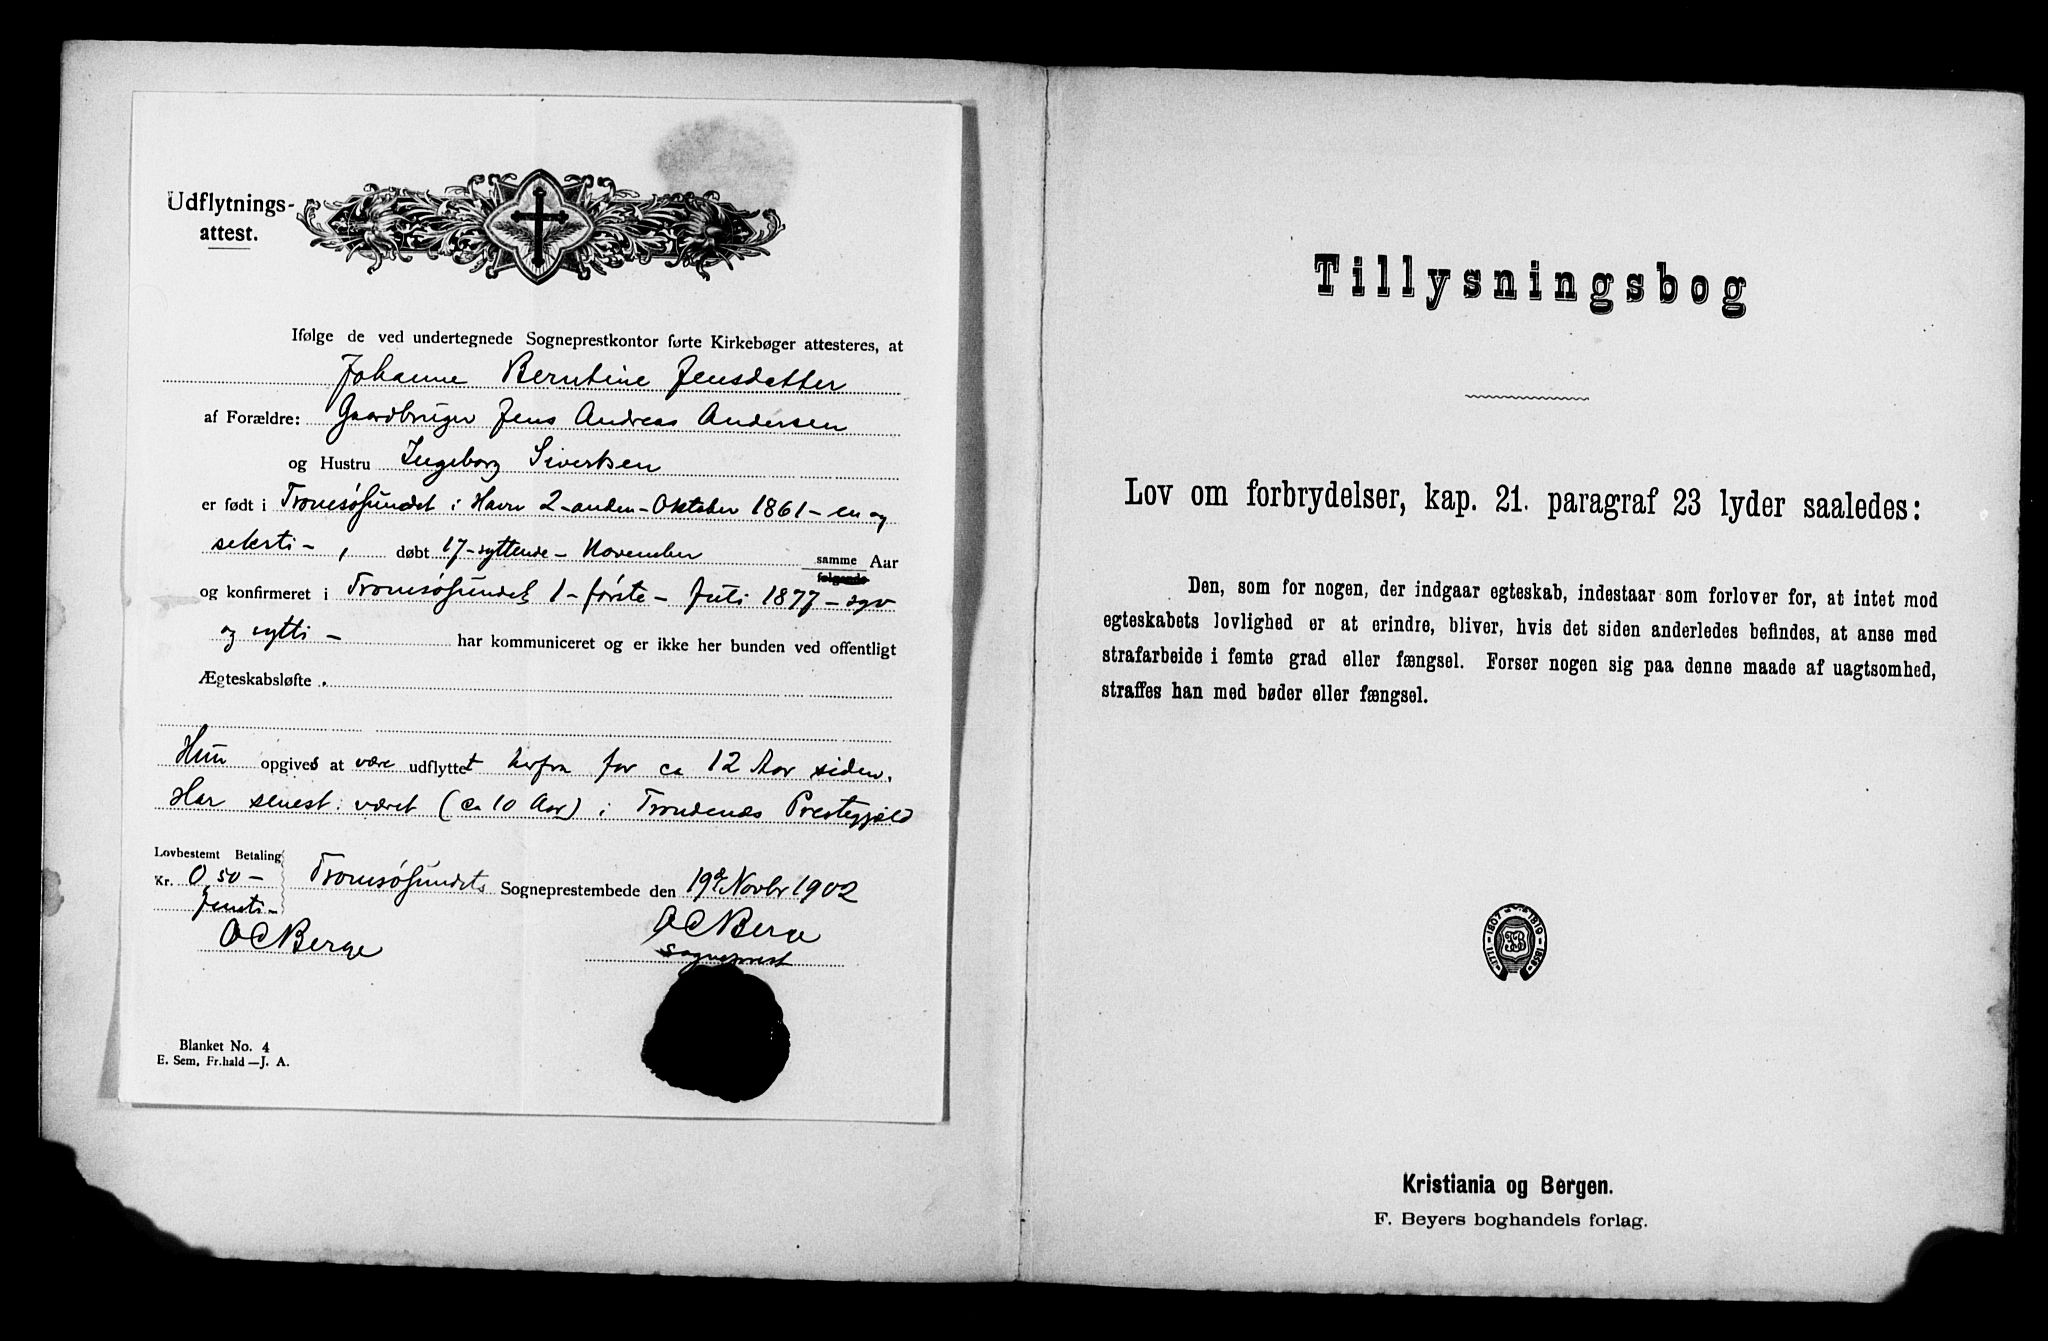 Udflytnings-
attest.
Ifølge de ved undertegnede Sogneprestkontor førte Kirkebøger attesteres, at
Johanne Berntine Jensdatter
af Forældre: Gaardbruger Jens Andreas Andersen
og Hustru Ingeborg Sivertsen
er født i Tromsøsundet i Havn 2-anden-Oktober 1861- en og
seksti -, døbt 17-syttende- November samme Aar
følgende
og konfirmeret i Tromsøsundet 1-første- Juli 1877- syv
og sytti - har kommuniceret og er ikke her bunden ved offentligt
Ægteskabsløfte .
Hun opgives at være udflyttet herfra for ca 12 Aar siden.
Har senest været (ca 10 Aar) i Trondenæs Prestegjæld
Lovbestemt Betaling
Kr. 0,50 - Tromsøsundets Sogneprestembede den 19de Novbr 1902
OCBerge
OCBerge
sogneprest
Blanket No. 4
E. Sem, Fr.hald —J. A.
Tillysningsbog
Lov om forbrydelser, kap. 21. paragraf 23 lyder saaledes:
Den, som for nogen, der indgaar egteskab, indestaar som forlover for, at intet mod
egteskabets lovlighed er at erindre, bliver, hvis det siden anderledes befindes, at anse med
strafarbeide i femte grad eller fængsel. Forser nogen sig paa denne maade af uagtsomhed,
straffes han med bøder eller fængsel.
1771-1807- -1819-1868
Kristiania og Bergen.
F. Beyers boghandels forlag.